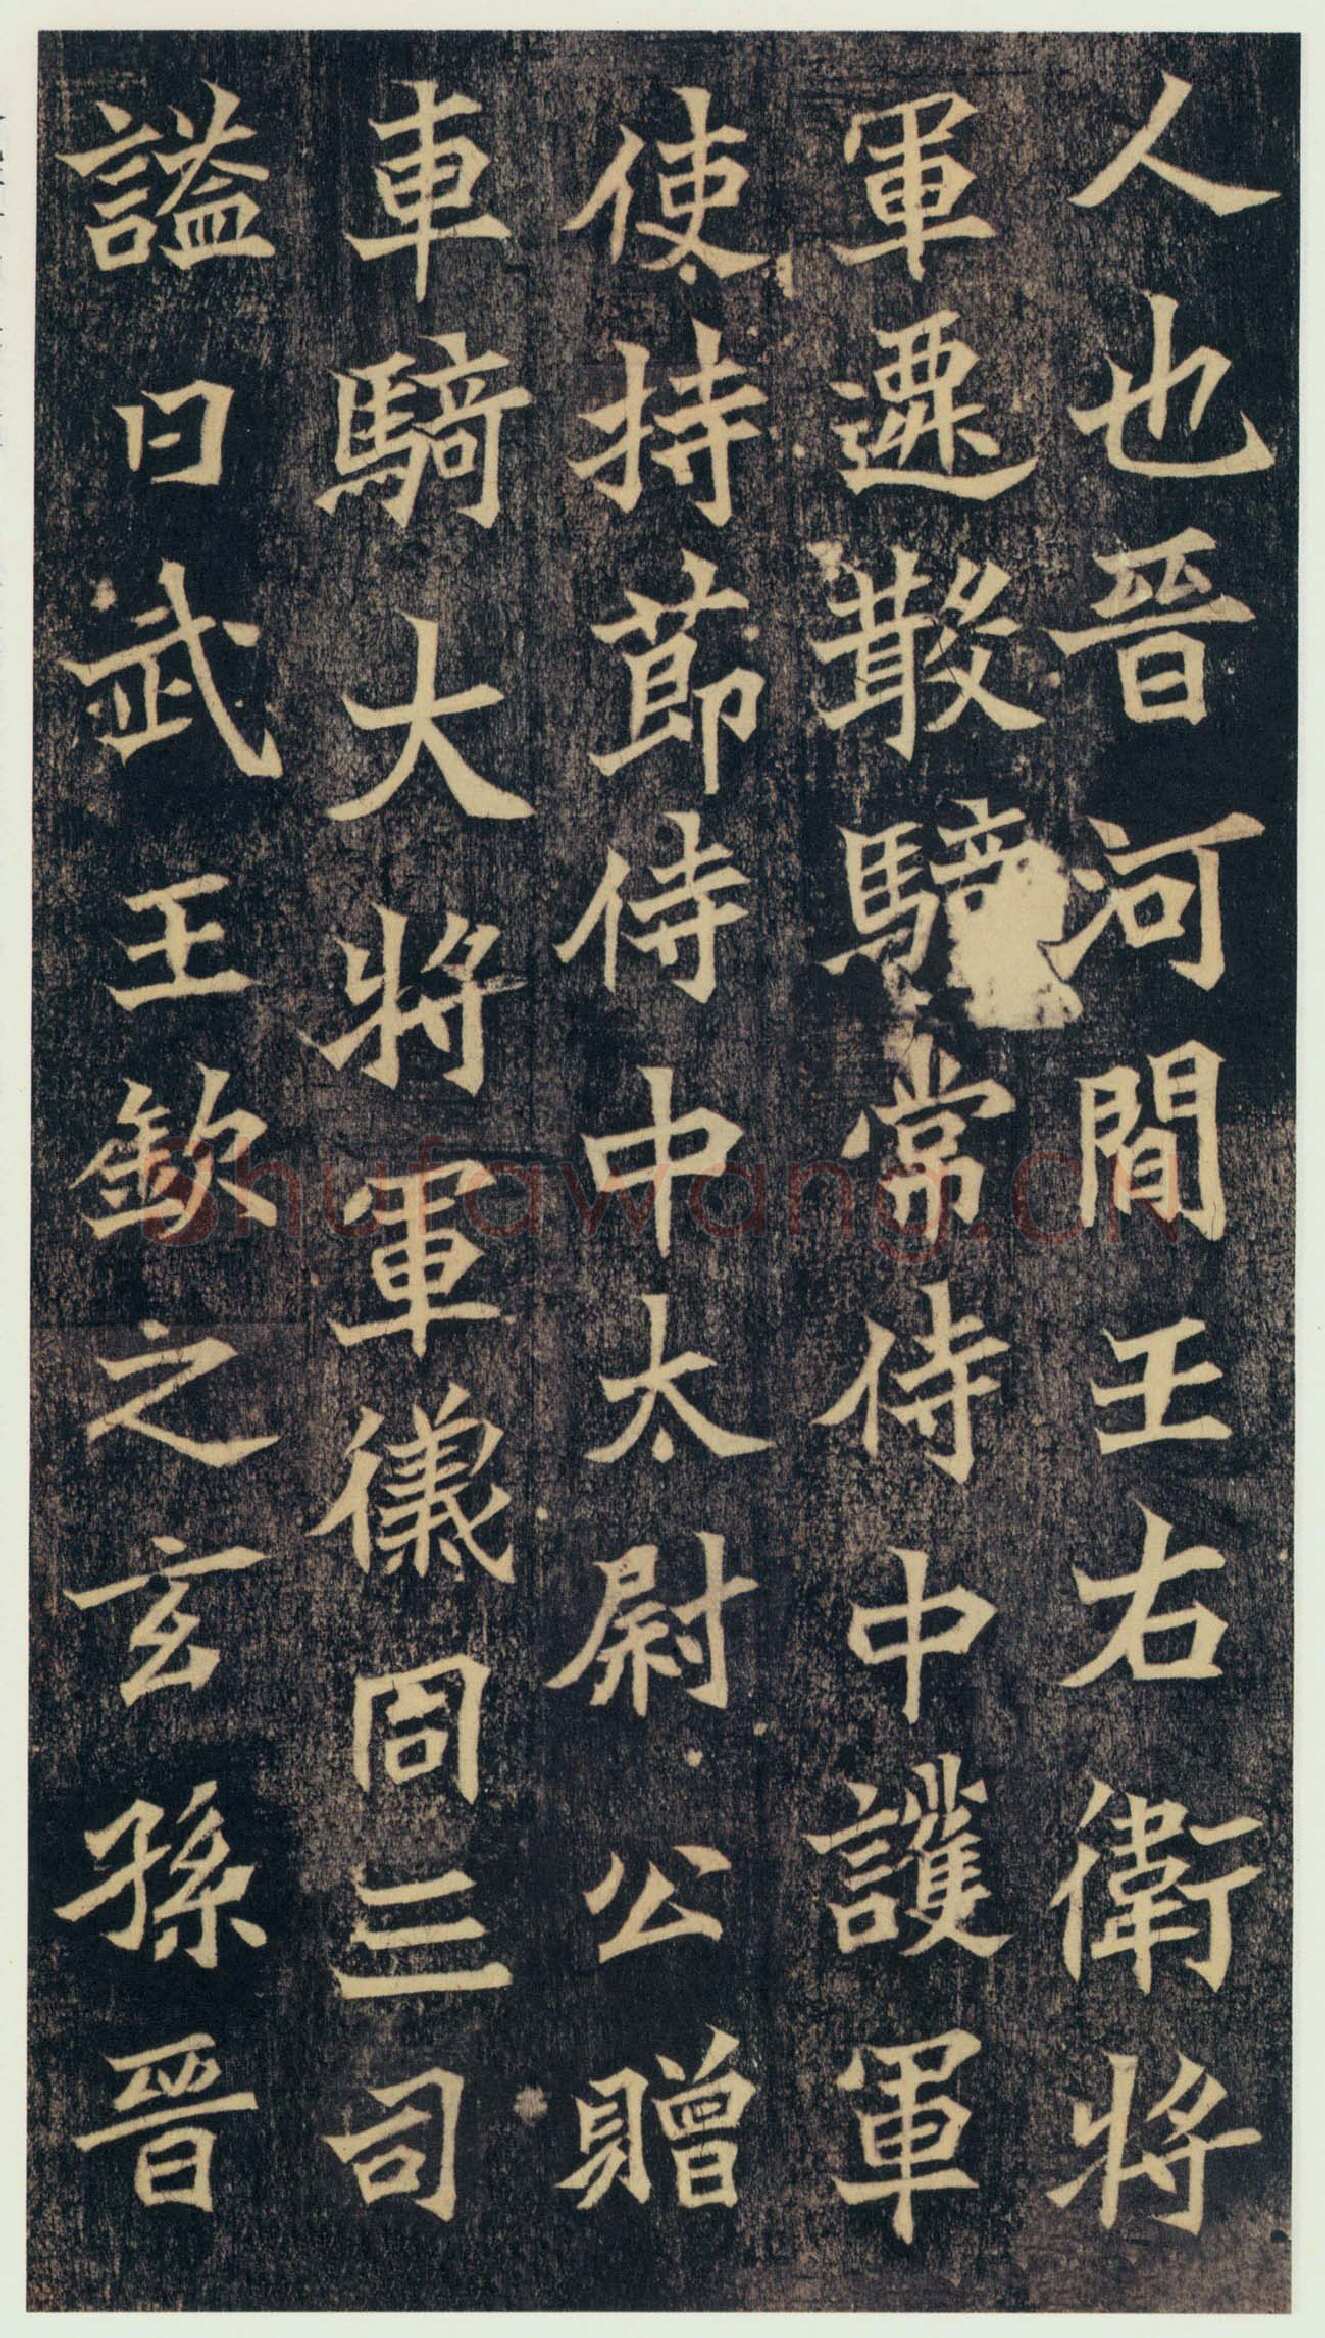 人也晉河間王右衛將
軍遷散騎常侍中護軍
使持節侍中太尉公贈
車騎大將軍儀同三司
謚曰武王欽之玄孫晉
shufawang.cn